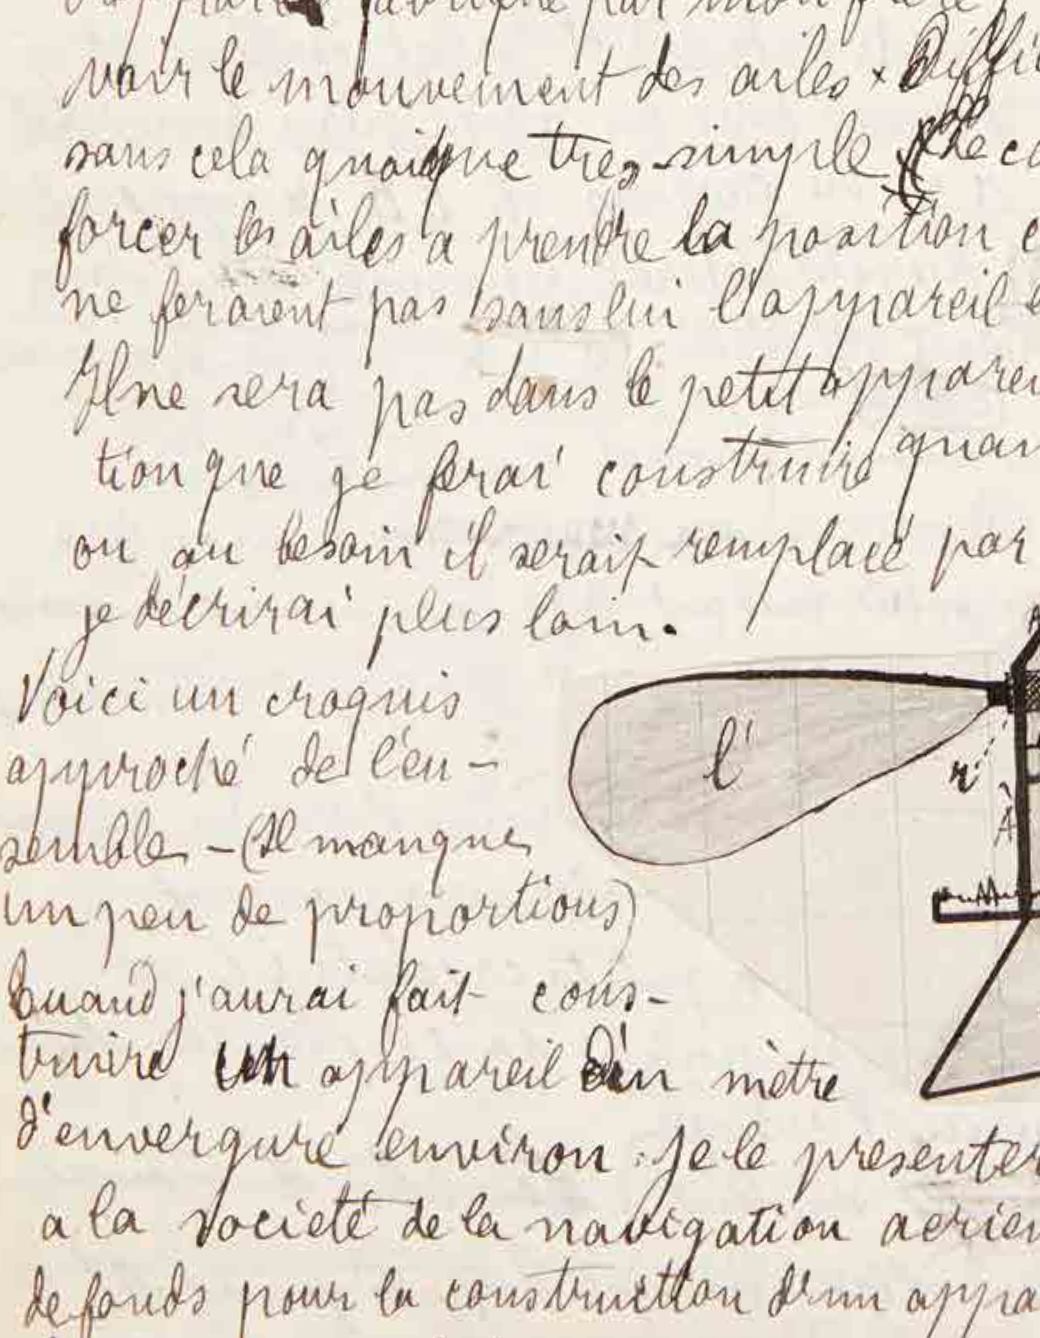 voir le mouvement des ailes × Diffi
sans cela quoique tres simple
forcer les ailes a prendre la position
ne feraient pas sans lui l'appareil
Il ne sera pas dans le petit apparei
tion que je ferai construire quan
ou au besoin il serait remplacé par
je décrirai plus loin.
Voici un croquis
approché de l'en-
semble - (Il manque
un peu de proportions)
Quand j'aurai fait cons-
truire un appareil d'un mètre
d'envergure environ. je le presenter
a la societé de la navigation aerien
de fonds pour la construction d'un appa
l'
r'
A